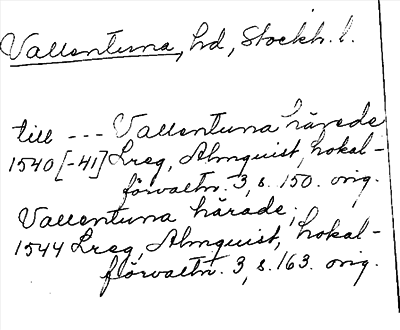 Vallentuna, hd, Stockh. l.
till --- Vallentuna härade
1540 [-41] Lreg, Almquist, Lokal-
förvaltn. 3, s. 150. orig.
Vallentuna härade;
1544 Lreg, Almquist, Lokal-
förvaltn. 3, s. 163. orig.